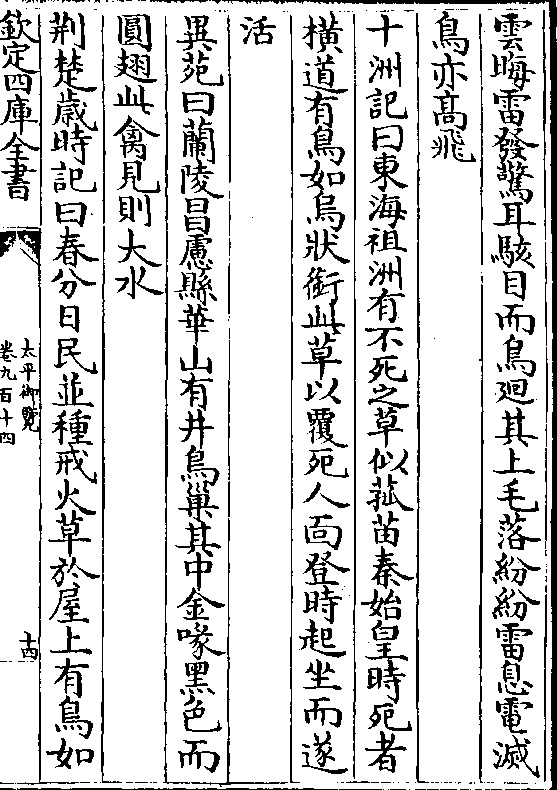 雲晦雷發驚耳駭目而鳥廻其上毛落紛紛雷息電滅
鳥亦髙飛
十洲記曰東海祖洲有不死之草似菰苗秦始皇時死者
橫道有鳥如烏狀銜此草以覆死人面登時起坐而遂
活
異苑曰蘭陵昌慮縣華山有井鳥巢其中金喙黑色而
圓翅此禽見則大水
荆楚歳時記曰春分日民並種戒火草於屋上有鳥如
欽定四庫全書
太平御覽
卷九百十四
十四